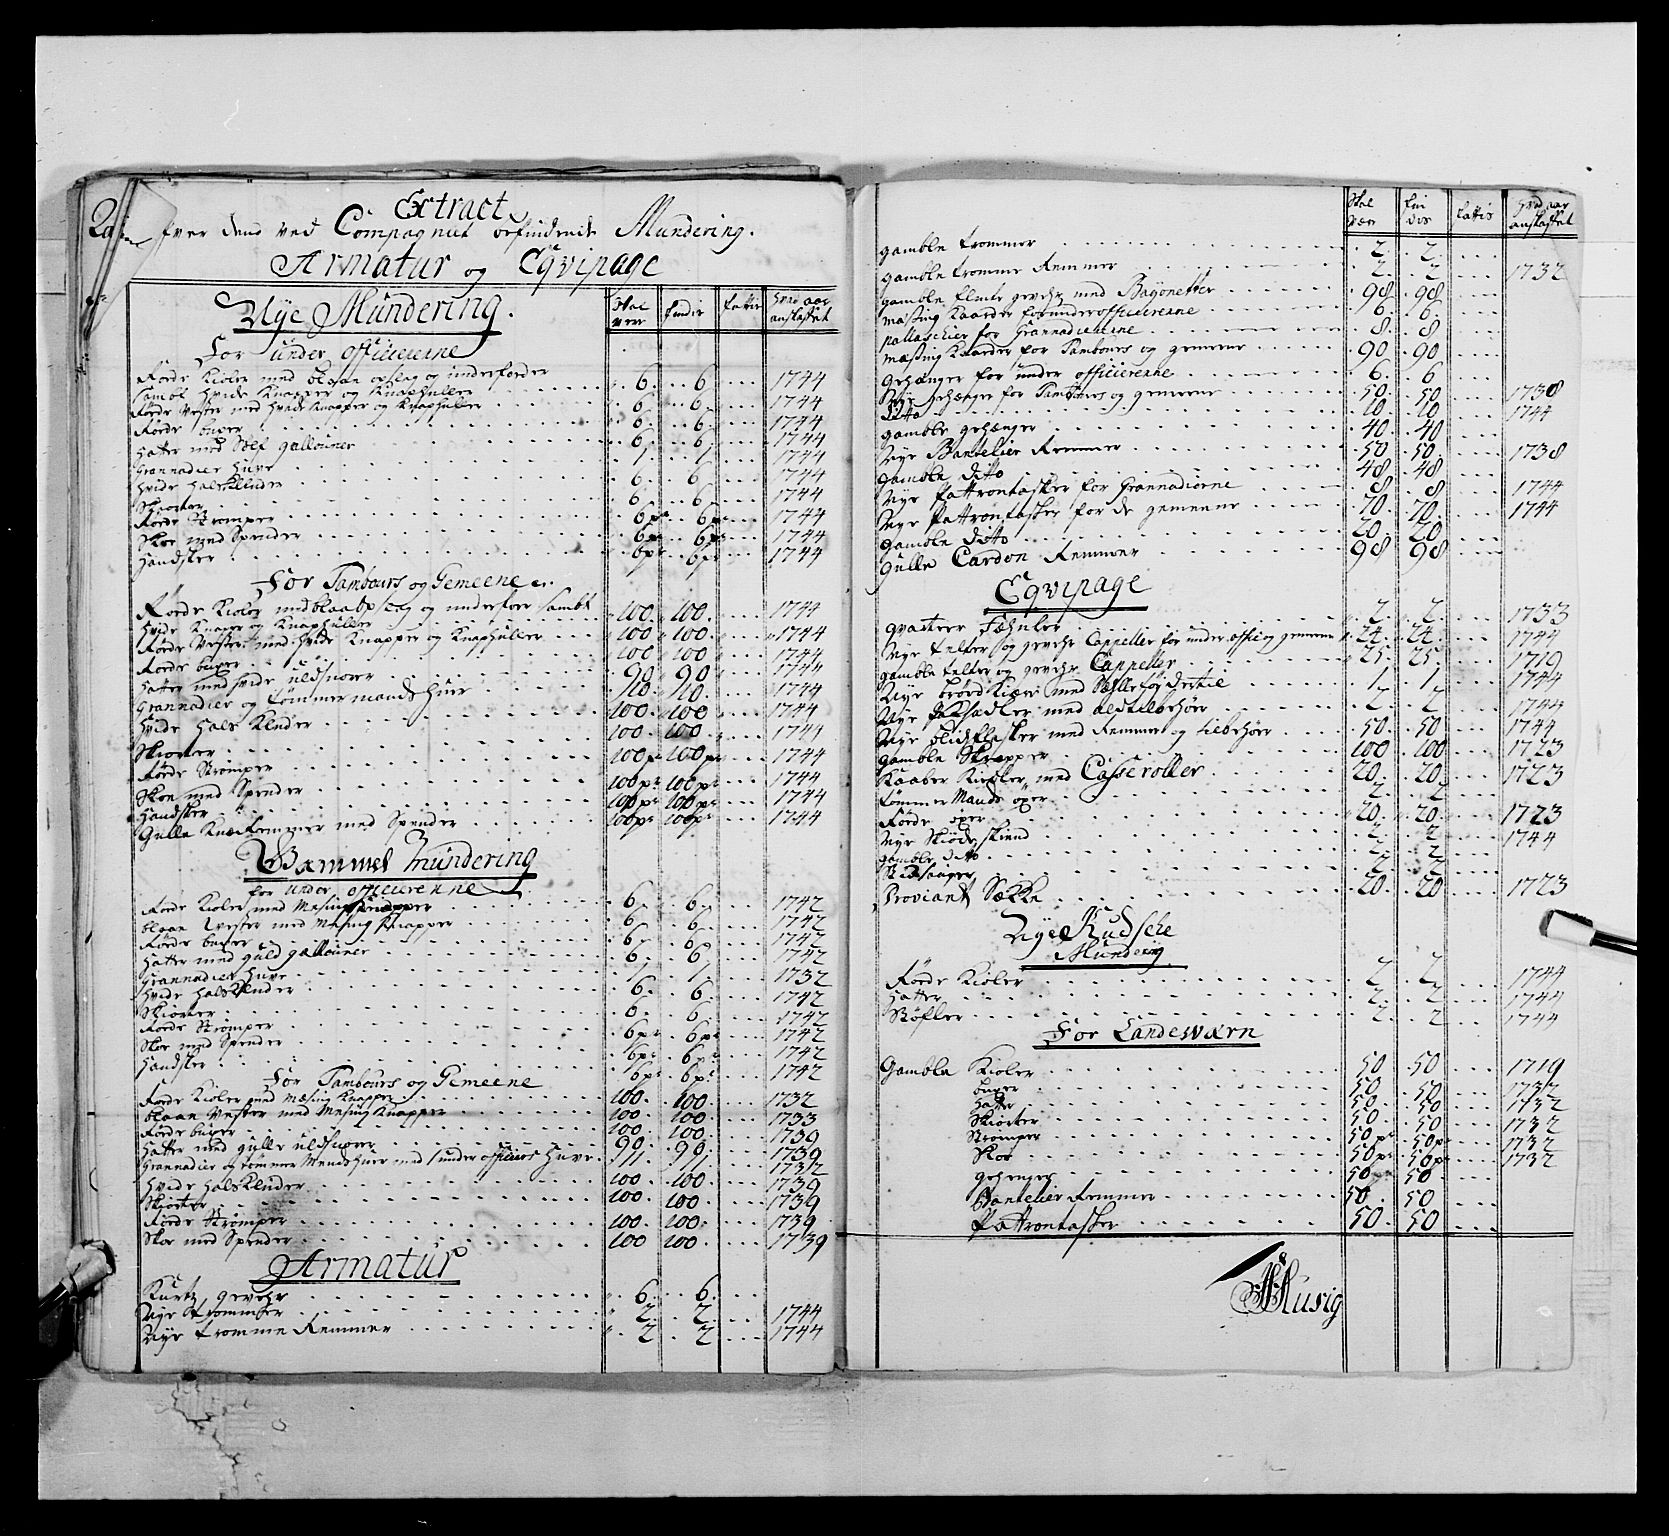 Extract
over dend ved Compagniet befindende Mundering.
Armatur og Eqvipage
Nye Mundering.
Skal være findis fattis hvad aar anskaffet
For under officiererne
Røde Kioler med blaae opslag og underfoeder
samt hvide Knapper og Knaphuller 6. 6. 1744
Røde Vester med hvide Knapper og Knaphuller 6. 6. 1744
Røde buxer 6. 6. 1744
Hatter med Sølf gallouner 6. 6. 1744
Grannadier huve 1. 1. 1744
hvide halskluder 6. 6. 1744
Skiorter 6. 6. 1744
Røde Strømper 6pr 6pr 1744
Skoe med Spender 6pr 6pr 1744
Handsker 6pr 6pr 1744
For Tambours og Gemeene
Røde Kioler med blaa Opslag og underfoer sambt
hvide Knaper og Knaphuller 100. 100. 1744
Røde Vester med hvide Knapper og Knaphuller 100 100 1744
Røde buxer 100 100 1744
Hatter med hvide uldsnorer 90 90 1744
Grannadier og tømmermands huer 10. 10. 1744
hvide Hals Kluder 100. 100 1744
Skiorter 100. 100. 1744
Røde Strømper 100pr 100pr 1744
Skoe med Spender 100pr 100pr 1744
Handsker 100pr 100pr 1744
Gulle Knæ Remmer med Spender 100pr 100pr 1744
Gammel Mundering
for under officierenne
Røde Kioler med Mesing Knapper 6. 6. 1742
blaae Vester med Mesing Knapper 6. 6. 1742
Røde buxer 6. 6. 1742
Hatter med guld gallouner 6. 6. 1742
Grannadier huve 1. 1. 1732
hvide halskluder 6. 6. 1742
Skiorter 6. 6. 1742
Røde Strømper 6pr 6pr 1742
Skoe med Spender 6pr 6pr 1742
Handsker 6pr 6pr 1742
For Tambours og Gemeene
Røde Kioler med Mesing Knapper 100. 100. 1732
blaae Vester med Mesing Knapper 100 100 1733
Røde buxer 100. 100. 1739
Hatter med gulle uldsnorer 90. 90. 1739
Grannadier og tømmer Mends huer med 1 under officiers huve 11. 11. 1732
hvide halskluder 100. 100 1739
Skiorter 100 100 1739
Røde Strømper 100. 100. 1739
Skoe med Spender 100 100. 1739
Armatur
Kurtz gevehr 6. 6.
Nye Trommer 2. 2. 1744
Nye tromme Remmer 2 2 1744
Skal være fin dis fattis hvad aar anskaffet
gamble trommer 2. 2.
gamble tromme Remmer 2. 2 1732
gamble flinte gevehr med Bajonetter 98 98
Massing Kaarder for underofficiererne 6. 6.
pallaschier for Grannadiererne 8. 8
Mæssing Kaarder for Tambours og gemeene 90 90
Gehænger for under officierenne 6. 6
Nye gehænger for Tambours og gemeene 50 50 1738
Ditto 10 10 1744
gamble gehænger 40 40
Nye Bantelier Remmer 50 50. 1738
gamble ditto 48 48
Nye Pattrontasker for Grannadierne 8 8 1744
Nye Pattrontasker for de gemeene 70 70. 1744
gamble ditto 20. 20
Gulle Cardon Remmer 98 98
Eqvipage
qvarteer Fahnler 2. 2. 1733
Nye telter og gevehr Cappeller for under offi: og gemeene 24. 24. 1744
gamble telter og gevehr Cappeller 25. 25. 1719
Nye brød Kiære med Selle og dextil 1. 1. 1744
Nye Paksadler med altilbehør 2. 2 1744
Nye blichflasker med Remmer og tilbehør 50 50 1744
gamble Skrepper 100 100 1723
Kaaber Kiedler med Casseroller 20. 20. 1723
tømmer Mands øxer 2. 2
Røde øxer 20. 20. 1723
Nye Skiødsskind 2 2 1744
gamble ditto 2. 2
Stiksauger 2 2
Proviant Sække 20. 20 1723
Nye Kudsche
Mundering
Røde Kioler 2 2 1744
hatter 2. 2 1744
Støfler 2. 2 1744
For Landeværn
Gamble Kioler 50 50 1719
buxer 50 50 1732
hatter 50. 50 1732
Skiorter 50. 50 1732
Strømper 50pr 50pr 1732
Skoe 50pr 50pr 1732
gehenger 50 50
Bantelier Remmer 50. 50
Pattrontasker 50. 50
Husig